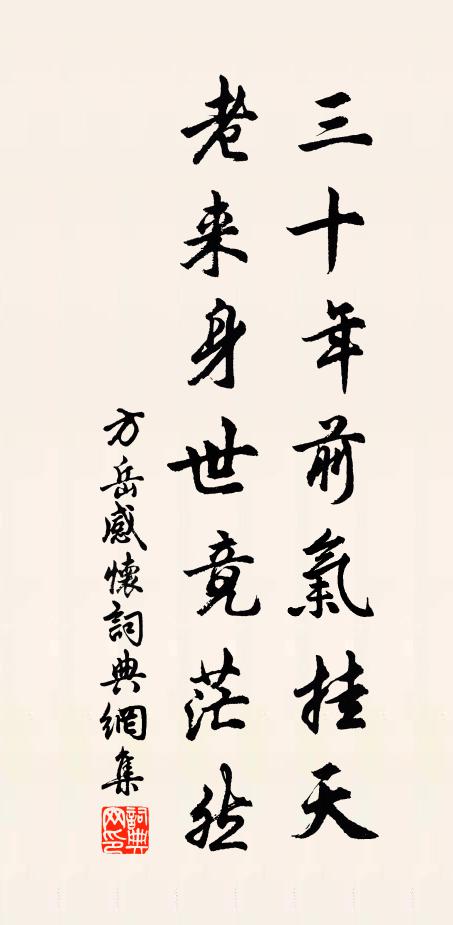 三十年前氣挂天
老来身世竟茫然
方岳感懷詞典網集
詞典网印